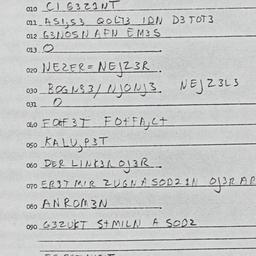 010 CI G3Z1NT
011 ASI,S3 QOLT3 IDN D3TOT3
012 G3NOSN AFN EM3S
013 O
020 NEZER = NEJZ3R
030 BOGNS3/NJONJ3. NEJZ3LS
031 O
040 FOEF3T FOFFA,CT
050 KALU,P3T
060 DER LINK3R OJ3R
070 ER3T MIR ZUGN A SOD21N OJ3R AR
080 ANROM3N
090 G3ZUKT S+MILN A SOD2